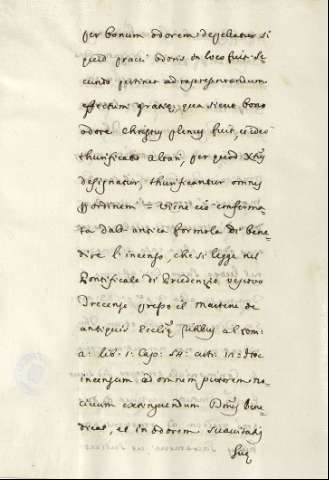 per bonum odorem depellatur si
quid pravi odoris in loco fuit. Se-
cundo pertinet ad repraesentandum
effectum gratiae, qua sicut bono
odore Christus plenus fuit, et ideo
thurificato altari, per quod Xtus
designatur, thurificantur omnes
p ordinem = Viene ciò conferma-
ta dall antica formola di bene
dire l'incenso, che si legge nel
Pontificale di Prudenzio vescovo
Trecense presso il Martene de
antiquis Eccl
a: lib: 1: Cap: 4:
incensum ad omnem putorem no-
civum extinguendum Dnus bene
dicat, et in odorem suavitatis
suae